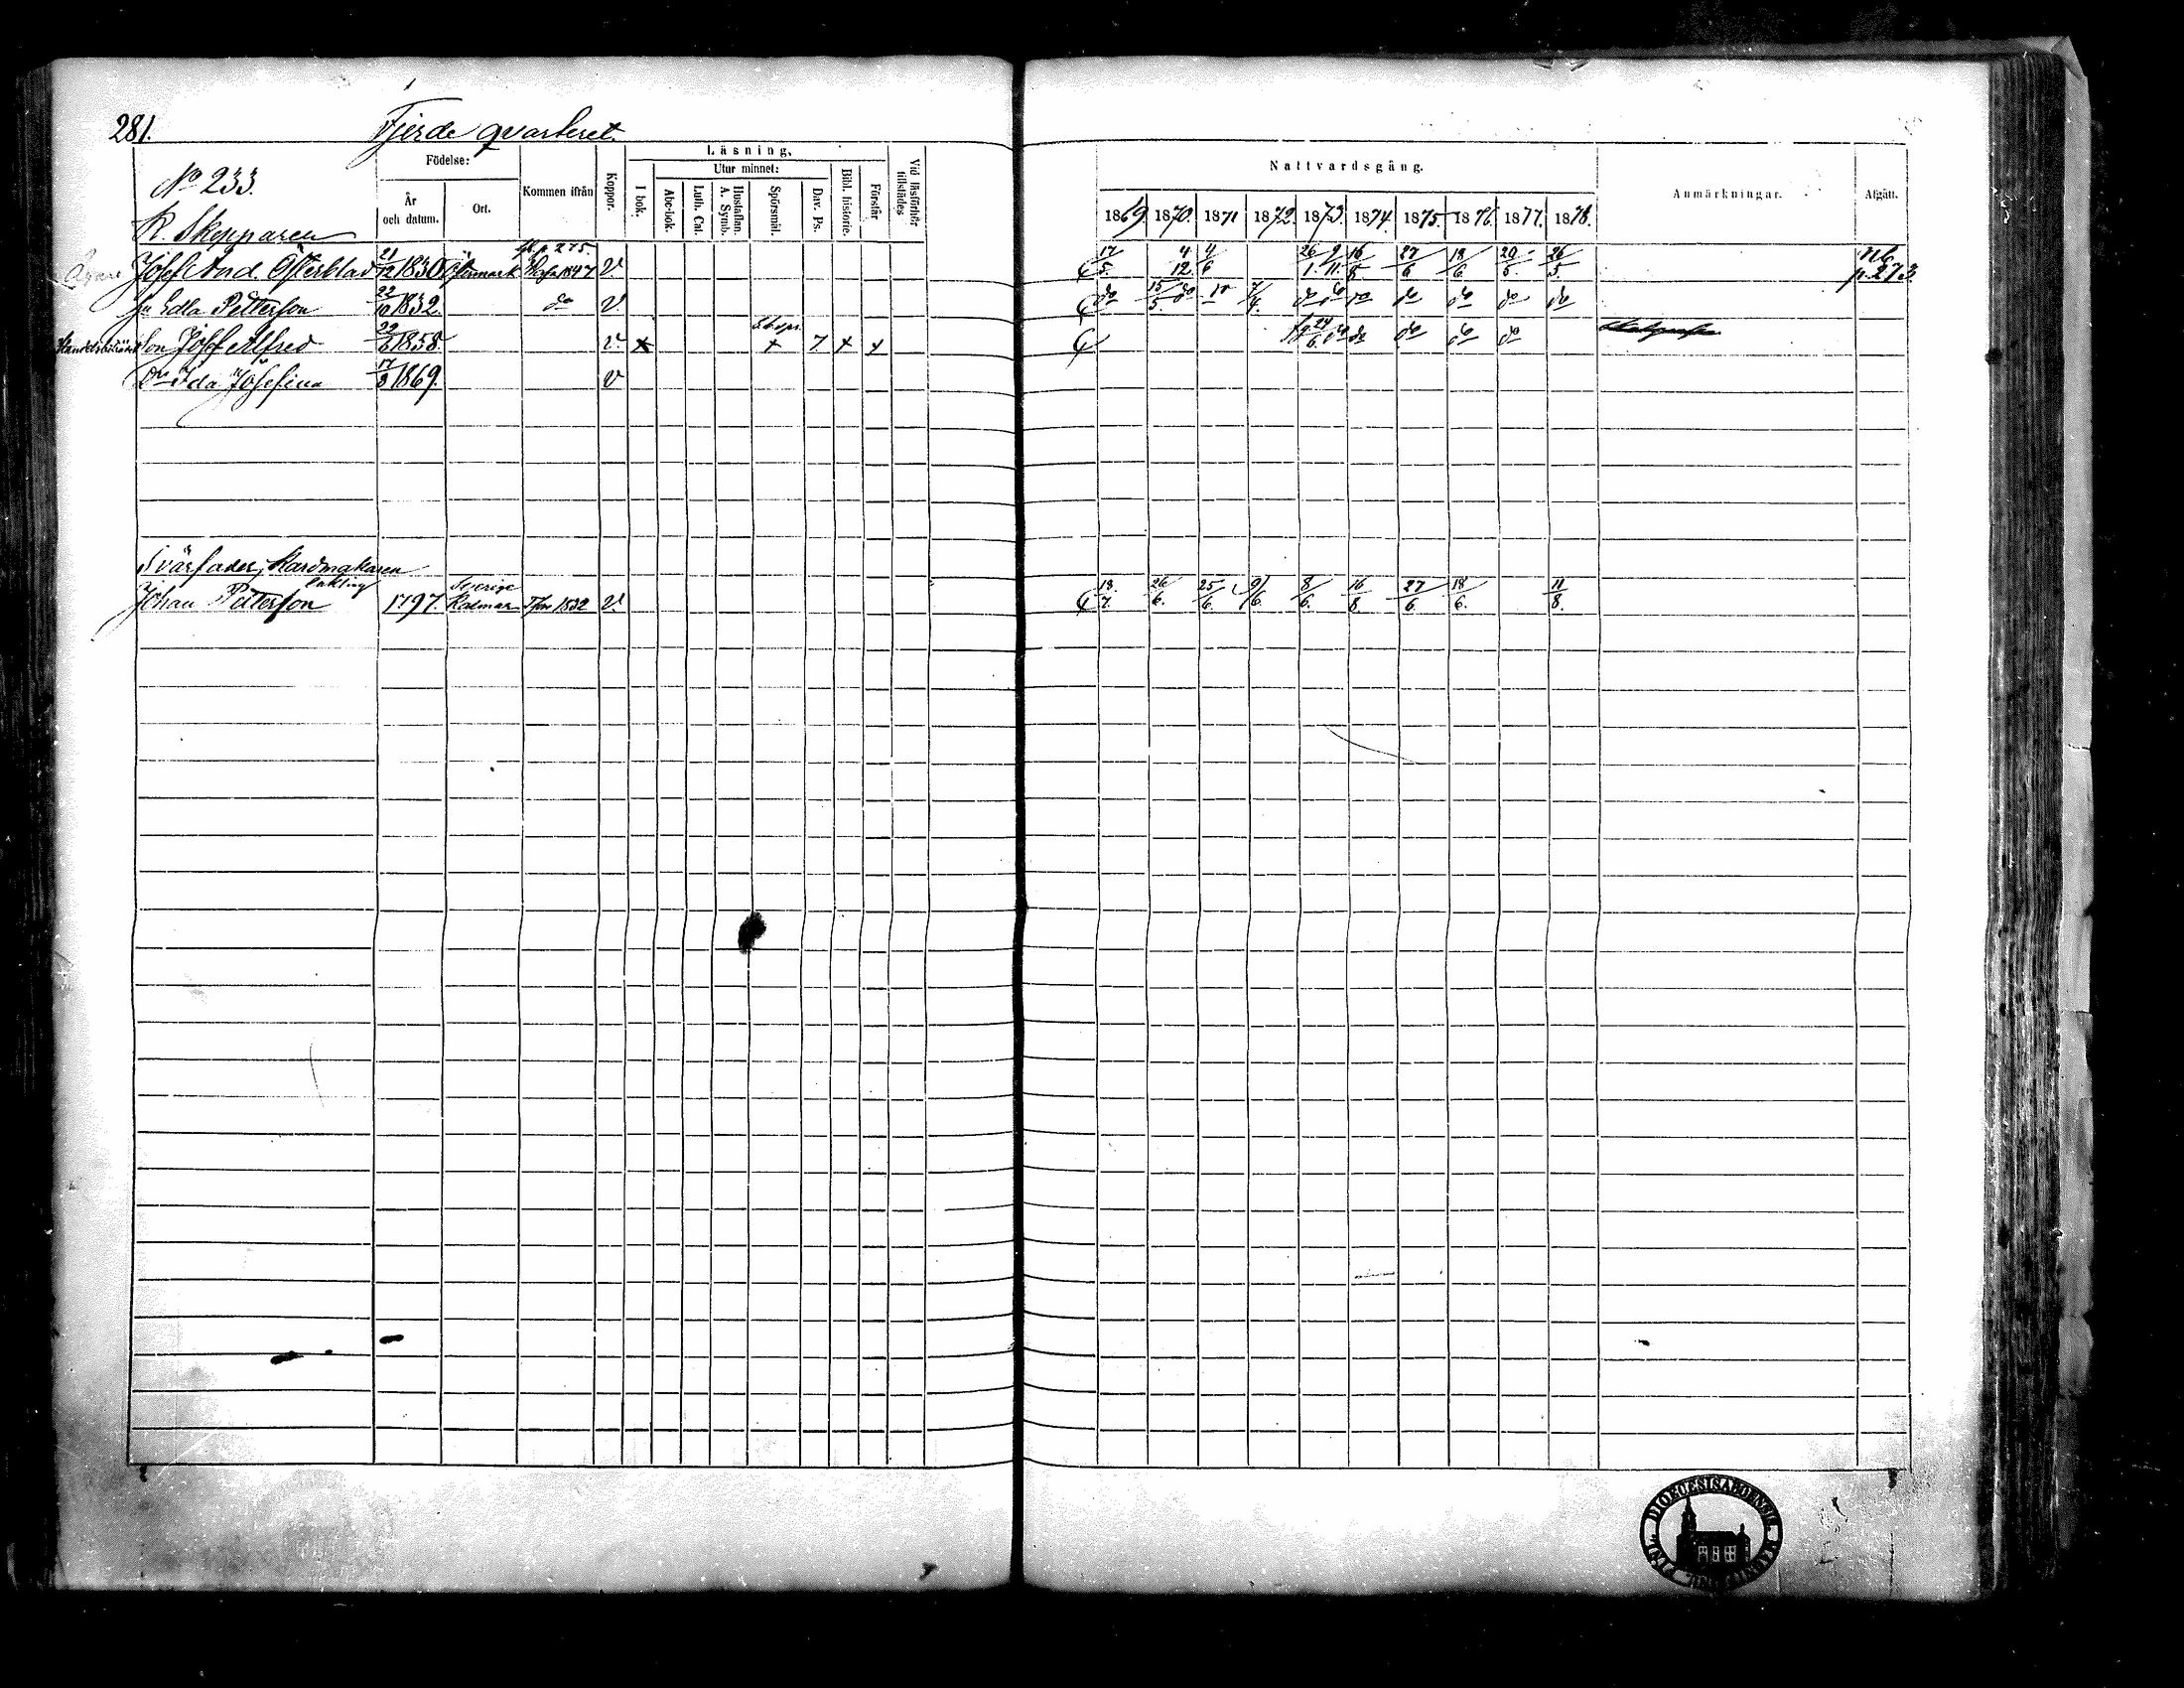 281.
Fjerde qvarteret.
No 233.
R. Skepparen
Födelse:
År och datum.
Ort.
Kommen ifrån
Koppor.
Läsning.
I bok.
Utur minnet:
Abc-bok.
Luth. Cat.
Hustaflan. A. Symb.
Spörsmål.
Dav. Ps.
Bibl. historie.
Förstår
Vid läsförhör tillstädes
Nattvardsgång.
1869 1870. 1871 1872. 1873. 1874. 1875. 1876. 1877. 1878.
Anmärkningar.
Afgått.
p. 275.
Josef And. Österblad 21/12 1830 Östermark 1847 V 17/5. 4/12. 4/6 26/1. 9/11. 16/8 27/6 18/6. 20/5. 26/5. p. 273
hu Edla Petterson 22/10 1832. do V. do 15/5 do do 7/4. do do do do do do do
Son Josef Alfred 22/6 1858. V. x x 7 x x 24/6. do do do do do
Dr Ida Josefina 17/3 1869. V
Svärfader, Kardmakaren
Johan Petterson 1797. Sverige Kalmar 1832 V 18/7. 26/6. 25/6. 9/6. 8/6. 16/8. 27/6. 18/6. 11/8.